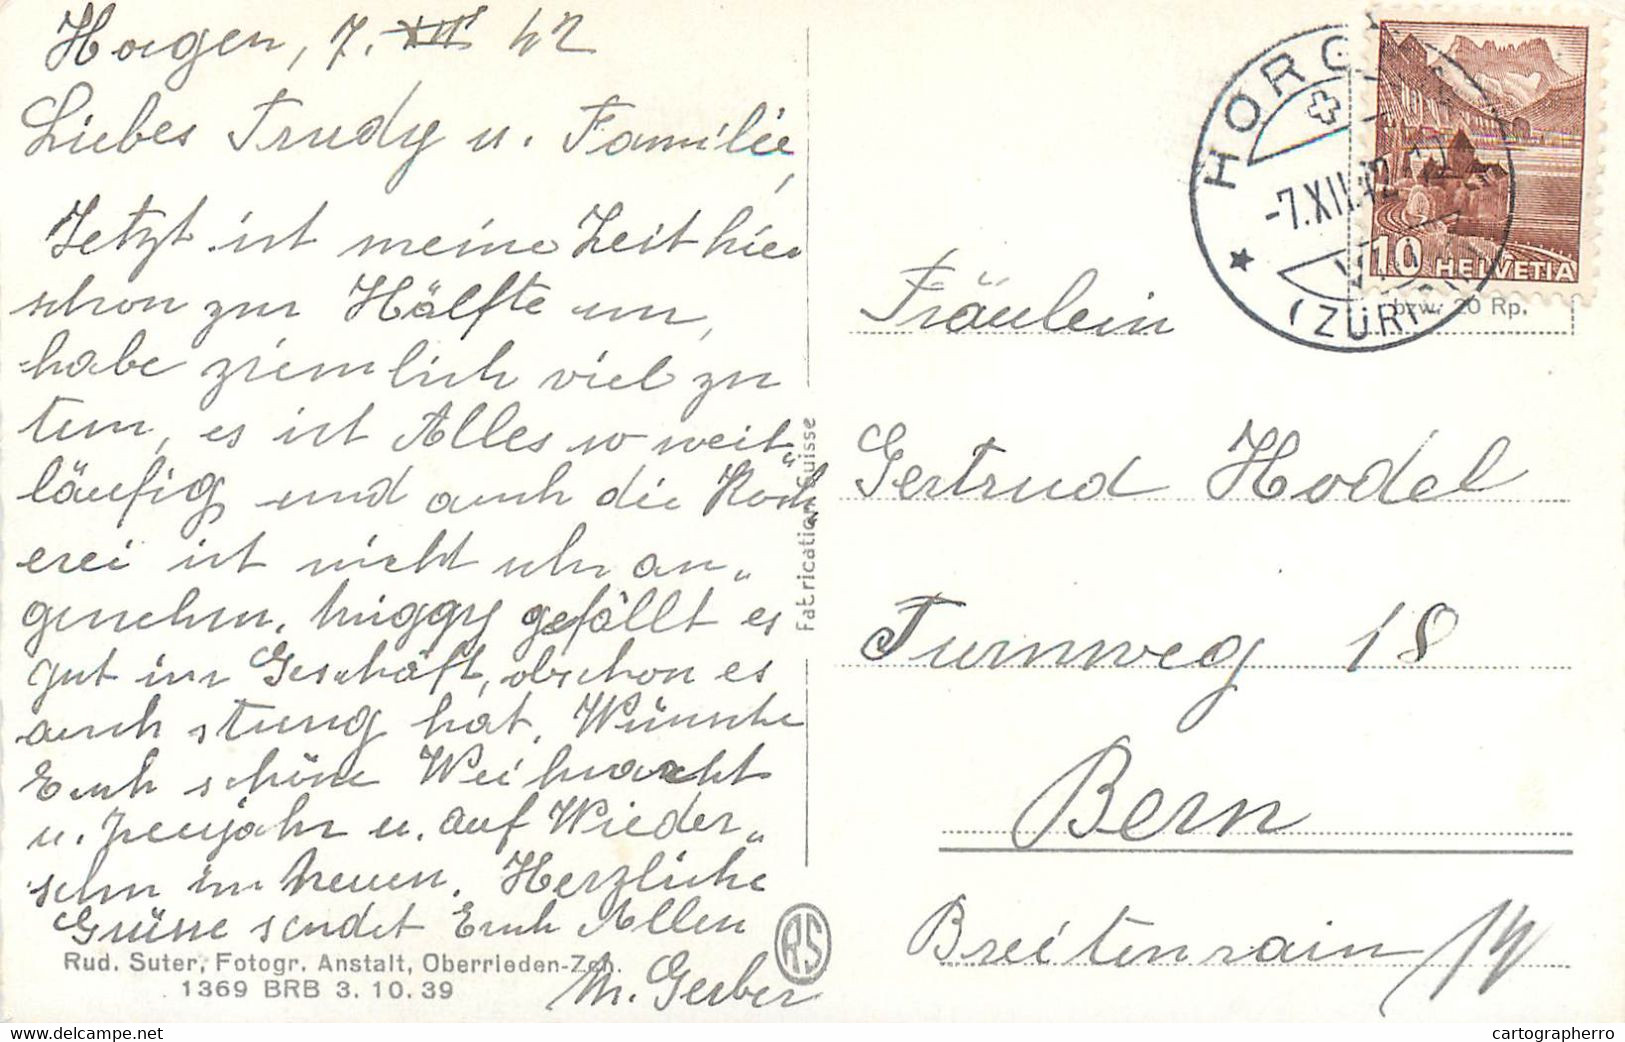 Horgen, 7. XII. 42
Liebes Trudy u. Familie,
Jetzt ist meine Zeit hier
schon zur Hälfte um,
habe ziemlich viel zu
tun, es ist Alles so weit„
läufig und auch die Koch„
erei ist nicht sehr an„
genehm. Miggy gefällt es
gut im Geschäft, obschon es
auch streng hat. Wünsche
Euch schöne Weihnacht
u. Neujahr u. auf Wieder„
sehn im neuen. Herzliche
Grüsse sendet Euch Allen
M. Gerber
Rud. Suter, Fotogr. Anstalt, Oberrieden-Zch.
1369 BRB 3. 10. 39
RS
Fabrication Suisse
HORGEN
-7.XII.42
(ZÜRICH)
10 HELVETIA
bzw. 20 Rp.
Fräulein
Gertrud Hodel
Turnweg 18
Bern
Breitenrain
delcampe.net
cartographerro